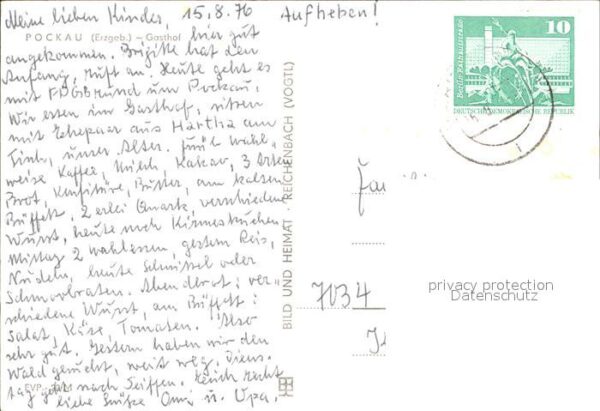 Meine lieben Kinder, 15.8.76 Aufheben!
POCKAU (Erzgeb.) – Gasthof
hier gut
angekommen. Brigitte hat den
Anfang, ruft an. Heute geht es
mit FDGB rund um Pockau.
Wir essen im Gasthof, sitzen
mit Ehepaar aus Hartha am
Tisch, unser Alter. Früh wahl-
weise Kaffee, Milch, Kakao, 3 Arten
Brot, Konfitüre, Butter, am kalten
Büffett, 2 erlei Quark, verschiedene
Wurst, heute noch Kirmeskuchen
Mittag 2 Wahlessen, gestern Reis,
Nudeln, heute Schnitzel oder
Schmorbraten. Abendbrot: ver-
schiedene Wurst, am Büffett:
Salat, Käse, Tomaten. Also
sehr gut. Gestern haben wir den
Wald gesucht, weit weg. Diens-
tag geht nach Seiffen. Euch recht
liebe Grüße Omi u. Opa.
EVP
BILD UND HEIMAT · REICHENBACH (VOGTL)
Berlin · Rathausstraße
10
DEUTSCHE DEMOKRATISCHE REPUBLIK
Fa
7034
privacy protection
Datenschutz